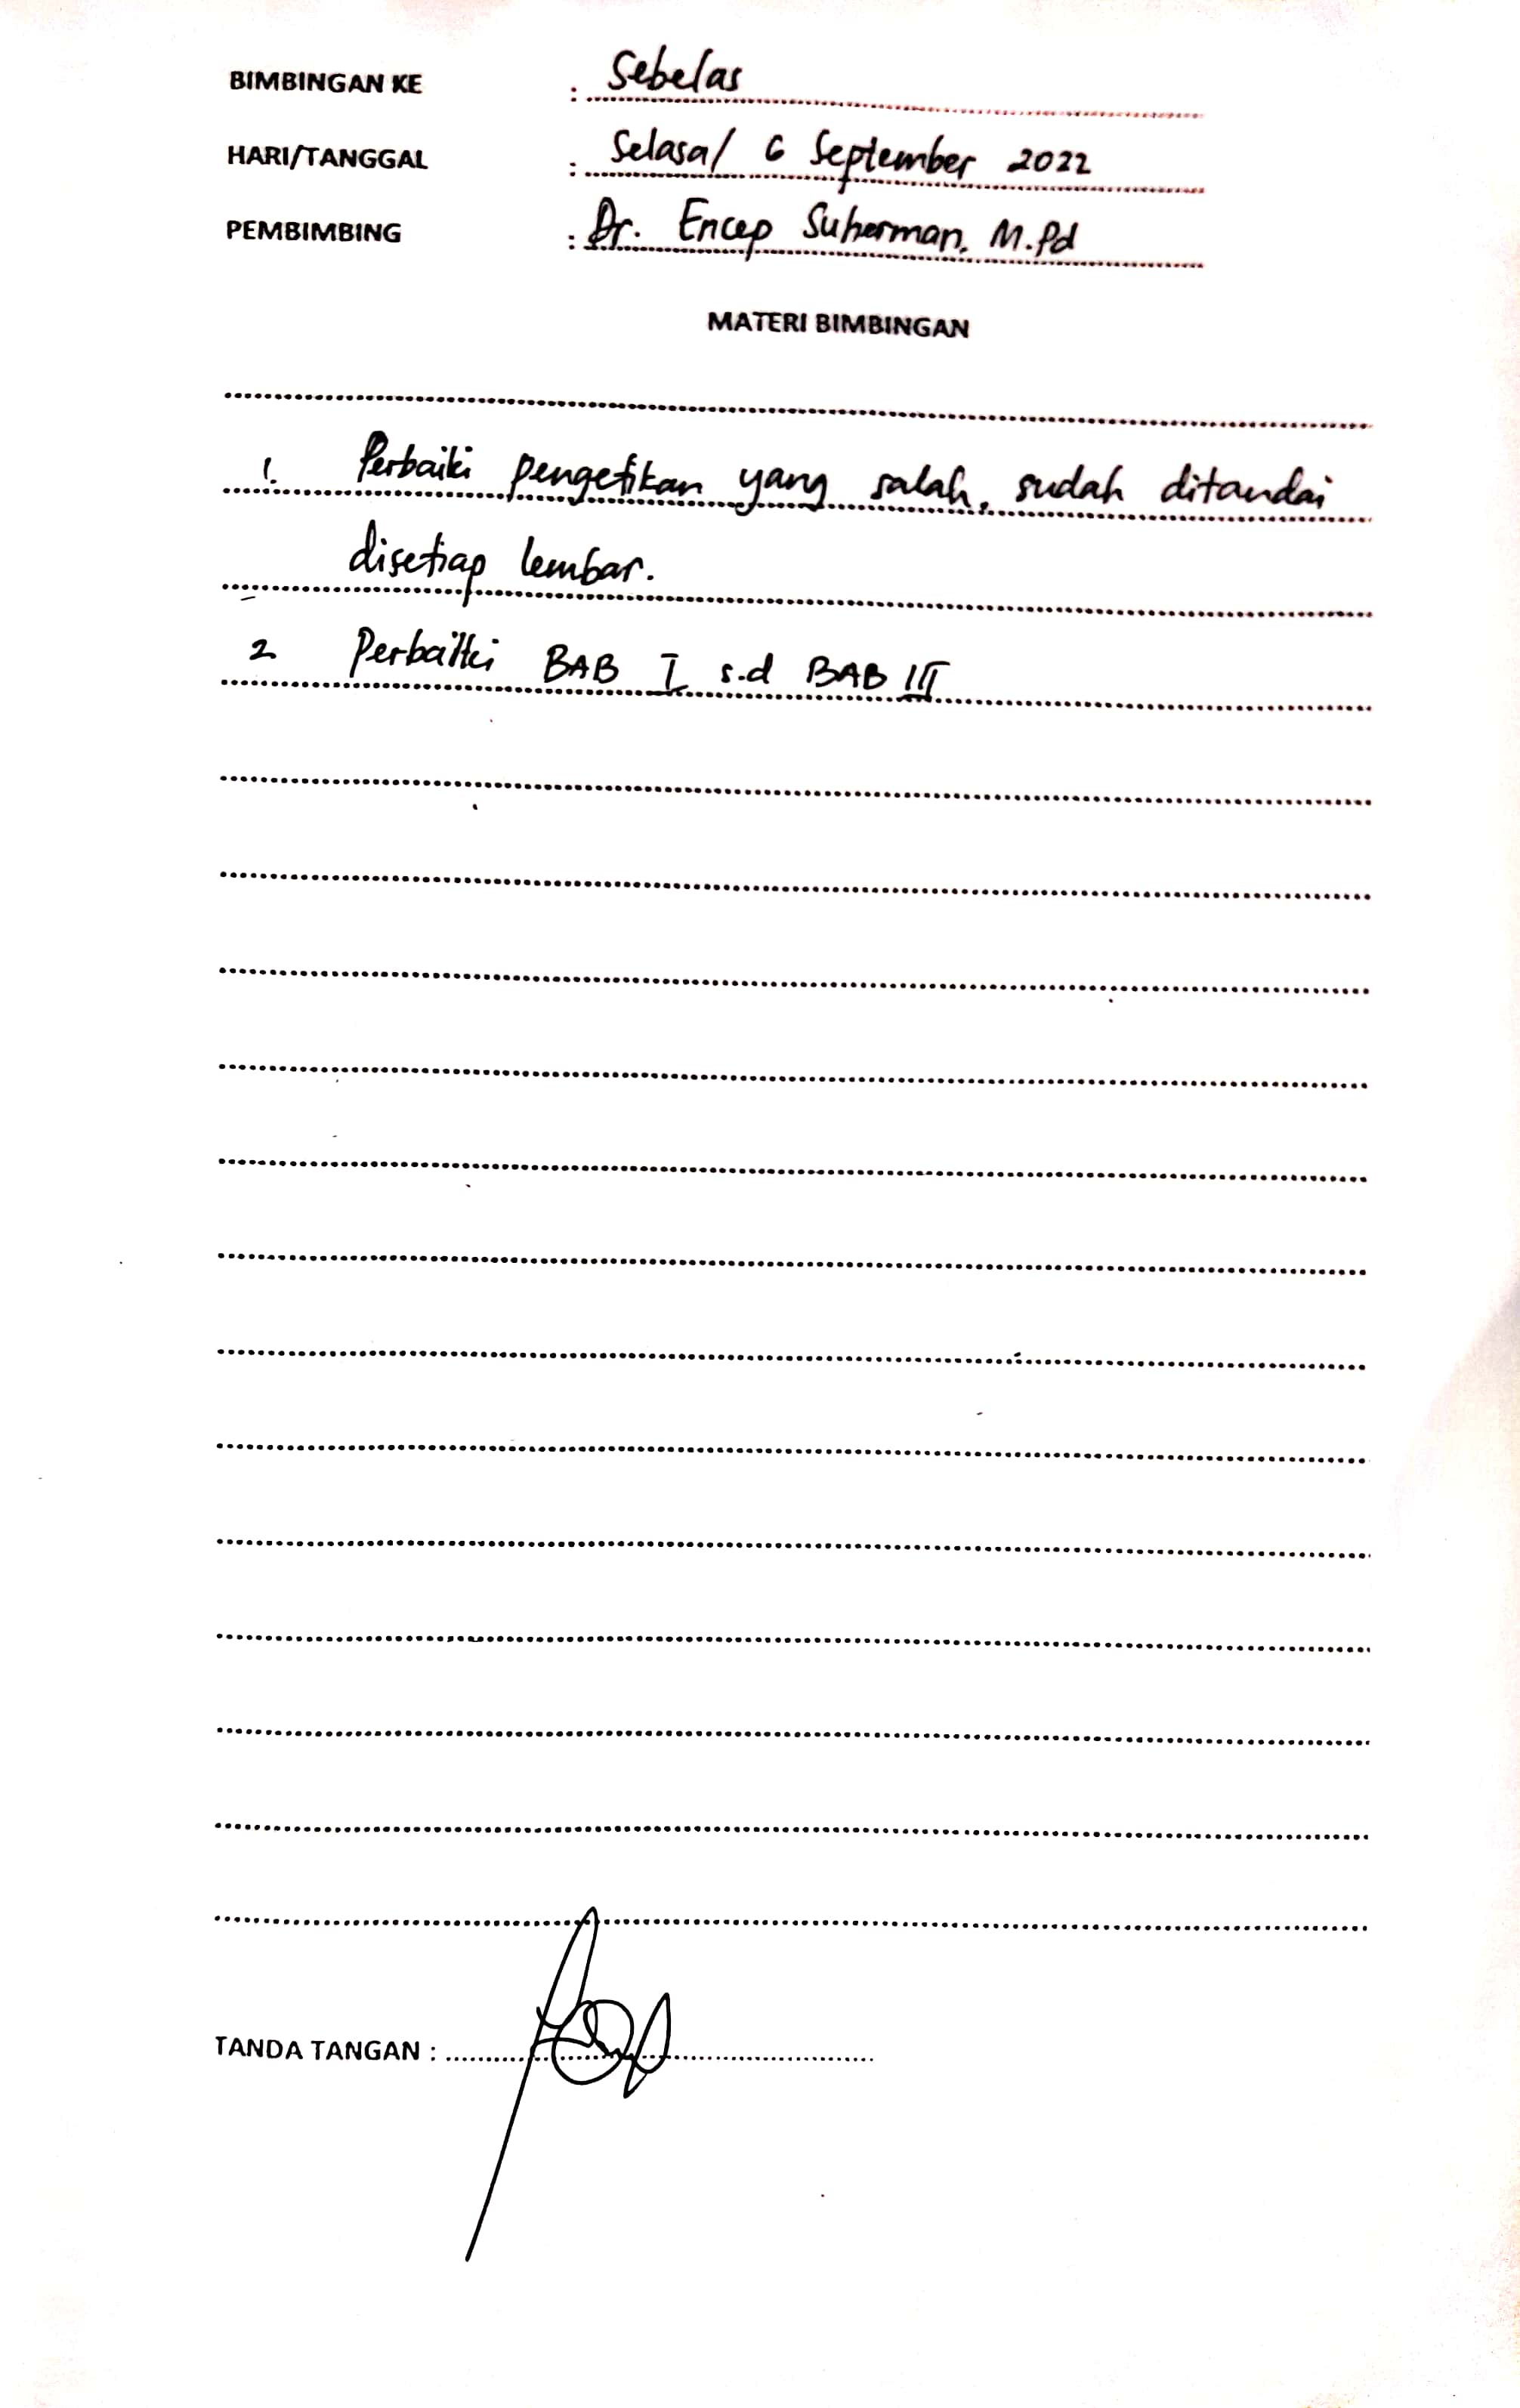 BIMBINGAN KE : Sebelas
HARI/TANGGAL : Selasa/ 6 September 2022
PEMBIMBING : Dr. Encep Suherman, M.Pd
MATERI BIMBINGAN
1. Perbaiki pengetikan yang salah, sudah ditandai
disetiap lembar.
2 Perbaiki BAB I s.d BAB III
TANDA TANGAN :